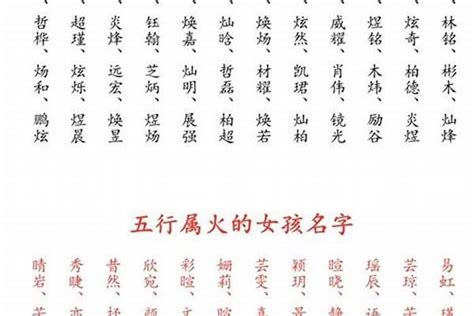 、林铭、彬木、灿烽
、炫奇、柏德、炎煜
、煜铭、木炜、励谷
、威耀、肖伟、镜光
、炫然、凯珺、灿柏
、焕炀、材耀、焕若
、灿晗、哲磊、柏超
、焕嘉、灿明、展强
、钰翰、芝炳、煜炀
、炎烽、远宏、焕昱
、超瑾、炫烁、煜晨
、哲桦、炀和、鹏炫
五行属火的女孩名字
易虹、
芸琼、
瑶辰、
暄晓、
颖玥、
芸雯、
姗莉、
彩暄、
欣宛、
昔然、
秀睫、
晴岩、